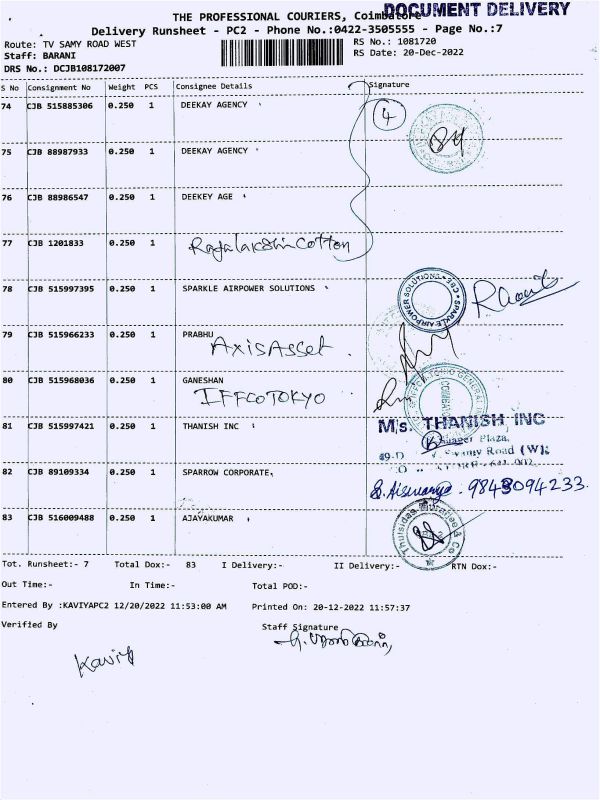 DOCUMENT DELIVERY
THE PROFESSIONAL COURIERS, Coimbatore
Delivery Runsheet - PC2 - Phone No.:0422-3505555 - Page No.:7
Route: TV SAMY ROAD WEST
RS No.: 1081720
Staff: BARANI
RS Date: 20-Dec-2022
DRS No.: DCJB108172007
S No Consignment No Weight PCS Consignee Details Signature
74 CJB 515885306 0.250 1 DEEKAY AGENCY
4
84
75 CJB 88987933 0.250 1 DEEKAY AGENCY
76 CJB 88986547 0.250 1 DEEKEY AGE
77 CJB 1201833 0.250 1 Rajalakshmi Cotton
78 CJB 515997395 0.250 1 SPARKLE AIRPOWER SOLUTIONS
SPARKLE AIRPOWER SOLUTIONS CBE
79 CJB 515966233 0.250 1 PRABHU
Axis Asset
80 CJB 515968036 0.250 1 GANESHAN
IFFCO TOKYO
81 CJB 515997421 0.250 1 THANISH INC
M/s. THANISH INC
Plaza,
Swamy Road (W)
82 CJB 89109334 0.250 1 SPARROW CORPORATE,
9843094233.
83 CJB 516009488 0.250 1 AJAYAKUMAR
Thulsidas & Co
Tot. Runsheet:- 7 Total Dox:- 83 I Delivery:- II Delivery:- RTN Dox:-
Out Time:- In Time:- Total POD:-
Entered By :KAVIYAPC2 12/20/2022 11:53:00 AM Printed On: 20-12-2022 11:57:37
Verified By Staff Signature
Kaviya